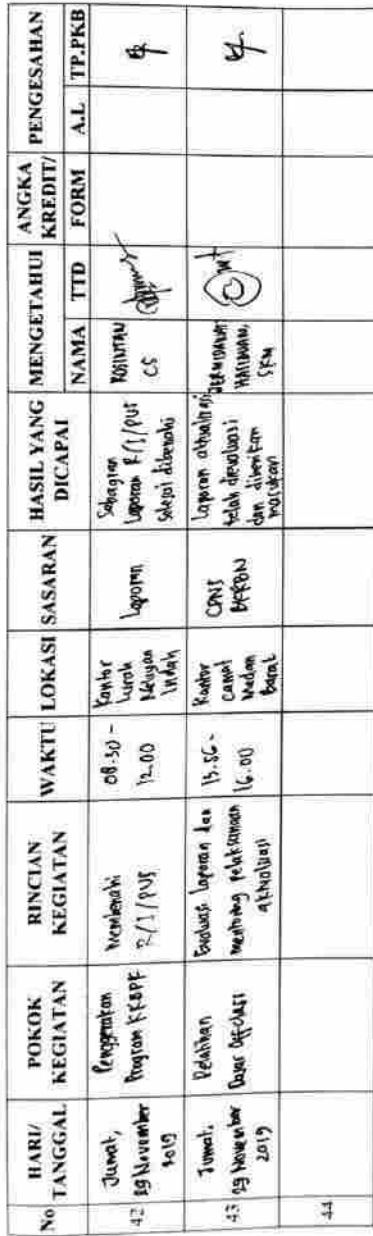 No
HARI/
TANGGAL
POKOK
KEGIATAN
RINCIAN
KEGIATAN
WAKTU
LOKASI
SASARAN
HASIL YANG
DICAPAI
MENGETAHUI
NAMA
TTD
ANGKA
KREDIT/
FORM
PENGESAHAN
A.L
TP.PKB
42
Jumat,
29 November
2019
Penggerakan
Program KKBPK
Membenahi
R/I/PUS
08.30 -
12.00
Kantor
Lurah
Nelayan
Indah
Laporan
Sebagian
Laporan R/I/PUS
selesai dibenahi
ROSINTAN
CS
43
Jumat,
29 November
2019
Pelatihan
Dasar Off Class
Evaluasi laporan dan
mentoring pelaksanaan
aktualisasi
16.00
Kantor
Camat
Medan
Barat
CPNS
BKKBN
Laporan aktualisasi
telah dievaluasi
dan diberikan
masukan
SKM
44